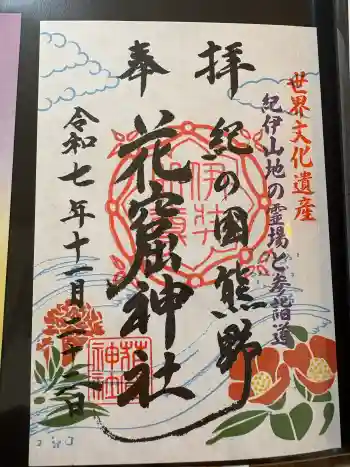 奉拝
世界文化遺産
紀伊山地の霊場と参詣道
紀の国熊野
花窟神社
令和七年十一月二十二日